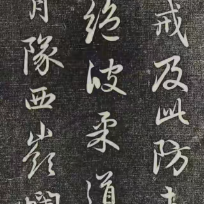 戒及此防
絕波柔道
隊西嶺